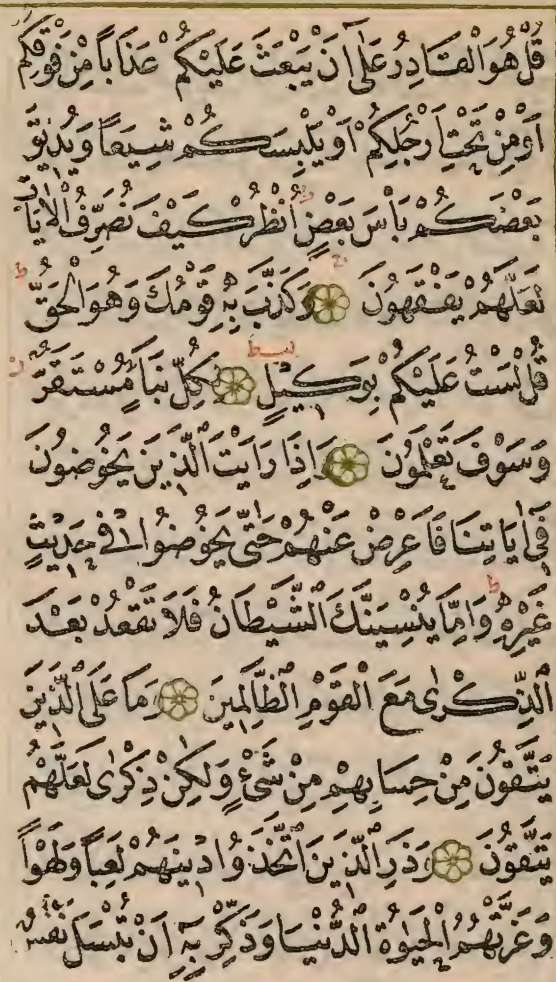 قُلْ هُوَ الْقَادِرُ عَلٰٓى اَنْ يَبْعَثَ عَلَيْكُمْ عَذَاباً مِنْ فَوْقِكُمْ
اَوْ مِنْ تَحْتِ اَرْجُلِكُمْ اَوْ يَلْبِسَكُمْ شِيَعاً وَيُذٖيقَ
بَعْضَكُمْ بَأْسَ بَعْضٍ ط اُنْظُرْ كَيْفَ نُصَرِّفُ الْاٰيَاتِ
لَعَلَّهُمْ يَفْقَهُونَ وَكَذَّبَ بِهٖ قَوْمُكَ وَهُوَ الْحَقُّ ط
قُلْ لَسْتُ عَلَيْكُمْ بِوَكٖيلٍ لِكُلِّ نَبَأٍ مُسْتَقَرٌّ
وَسَوْفَ تَعْلَمُونَ وَاِذَا رَاَيْتَ الَّذٖينَ يَخُوضُونَ
فٖٓى اٰيَاتِنَا فَاَعْرِضْ عَنْهُمْ حَتّٰى يَخُوضُوا فٖى حَدٖيثٍ
غَيْرِهٖ ط وَاِمَّا يُنْسِيَنَّكَ الشَّيْطَانُ فَلَا تَقْعُدْ بَعْدَ
الذِّكْرٰى مَعَ الْقَوْمِ الظَّالِمٖينَ وَمَا عَلَى الَّذٖينَ
يَتَّقُونَ مِنْ حِسَابِهِمْ مِنْ شَىْءٍ وَلٰكِنْ ذِكْرٰى لَعَلَّهُمْ
يَتَّقُونَ وَذَرِ الَّذٖينَ اتَّخَذُوا دٖينَهُمْ لَعِباً وَلَهْواً
وَغَرَّتْهُمُ الْحَيٰوةُ الدُّنْيَا وَذَكِّرْ بِهٖٓ اَنْ تُبْسَلَ نَفْسٌ